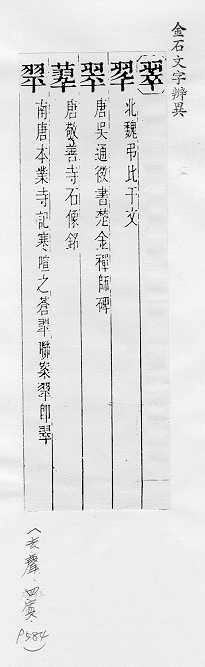 金石文字辨異
翠
翆 北魏弔比干文
唐吳通微書楚金禪師碑
唐敬善寺石像銘
翆 南唐本業寺記寒暄之蒼翆聯案翆即翠
(去聲.四寘.P584)